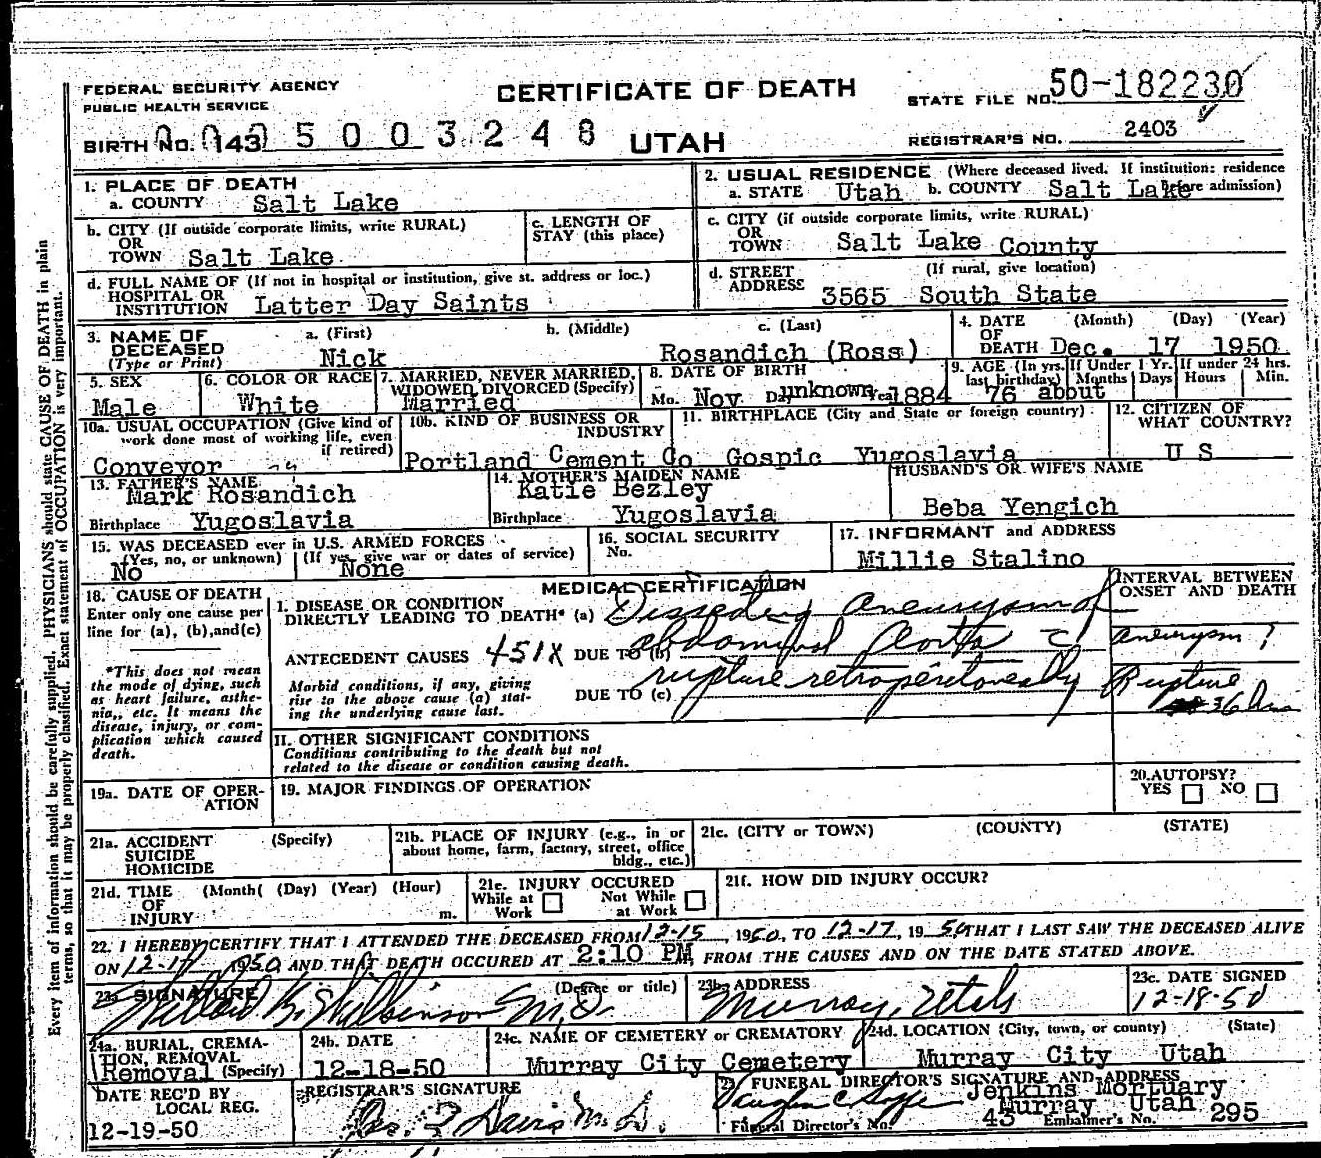 FEDERAL SECURITY AGENCY
PUBLIC HEALTH SERVICE
CERTIFICATE OF DEATH
STATE FILE NO. 50-182230
BIRTH NO. 143 5003248
UTAH
REGISTRAR'S NO. 2403
Every item of information should be carefully supplied. PHYSICIANS should state CAUSE OF DEATH in plain
terms, so that it may be properly classified. Exact statement of OCCUPATION is very important.
1. PLACE OF DEATH
a. COUNTY Salt Lake
2. USUAL RESIDENCE (Where deceased lived. If institution: residence before admission)
a. STATE Utah b. COUNTY Salt Lake
b. CITY (If outside corporate limits, write RURAL)
OR
TOWN Salt Lake
c. LENGTH OF
STAY (this place)
c. CITY (if outside corporate limits, write RURAL)
OR
TOWN Salt Lake County
d. FULL NAME OF (If not in hospital or institution, give st. address or loc.)
HOSPITAL OR
INSTITUTION Latter Day Saints
d. STREET (If rural, give location)
ADDRESS 3565 South State
3. NAME OF
DECEASED
(Type or Print)
a. (First) b. (Middle) c. (Last)
Nick Rosandich (Ross)
4. DATE (Month) (Day) (Year)
OF
DEATH Dec. 17 1950
5. SEX
Male
6. COLOR OR RACE
White
7. MARRIED, NEVER MARRIED,
WIDOWED, DIVORCED (Specify)
Married
8. DATE OF BIRTH
Mo. Nov Day unknown Year 1884
9. AGE (In yrs. last birthday)
76 about
If Under 1 Yr.
Months Days
If under 24 hrs.
Hours Min.
10a. USUAL OCCUPATION (Give kind of
work done most of working life, even
if retired)
Conveyor
10b. KIND OF BUSINESS OR
INDUSTRY
Portland Cement Co
11. BIRTHPLACE (City and State or foreign country)
Gospic Yugoslavia
12. CITIZEN OF
WHAT COUNTRY?
U S
13. FATHER'S NAME
Mark Rosandich
Birthplace Yugoslavia
14. MOTHER'S MAIDEN NAME
Katie Bezley
Birthplace Yugoslavia
HUSBAND'S OR WIFE'S NAME
Beba Yengich
15. WAS DECEASED ever in U.S. ARMED FORCES
(Yes, no, or unknown) (If yes, give war or dates of service)
No None
16. SOCIAL SECURITY
No.
17. INFORMANT and ADDRESS
Millie Stalino
18. CAUSE OF DEATH
Enter only one cause per
line for (a), (b), and (c)
*This does not mean
the mode of dying, such
as heart failure, asthe-
nia,, etc. It means the
disease, injury, or com-
plication which caused
death.
MEDICAL CERTIFICATION
INTERVAL BETWEEN
ONSET AND DEATH
I. DISEASE OR CONDITION
DIRECTLY LEADING TO DEATH* (a) Dissecting aneurysm of
ANTECEDENT CAUSES 451X DUE TO (b) abdominal aorta c
aneurysm ?
Morbid conditions, if any, giving
rise to the above cause (a) stat-
ing the underlying cause last.
DUE TO (c) rupture retroperitoneally
Rupture
36 hrs
II. OTHER SIGNIFICANT CONDITIONS
Conditions contributing to the death but not
related to the disease or condition causing death.
19a. DATE OF OPER-
ATION
19. MAJOR FINDINGS OF OPERATION
20. AUTOPSY?
YES NO
21a. ACCIDENT (Specify)
SUICIDE
HOMICIDE
21b. PLACE OF INJURY (e.g., in or
about home, farm, factory, street, office
bldg., etc.)
21c. (CITY or TOWN) (COUNTY) (STATE)
21d. TIME (Month( (Day) (Year) (Hour)
OF
INJURY m.
21e. INJURY OCCURED
While at Work Not While at Work
21f. HOW DID INJURY OCCUR?
22. I HEREBY CERTIFY THAT I ATTENDED THE DECEASED FROM 12-15, 1950, TO 12-17, 1950 THAT I LAST SAW THE DECEASED ALIVE
ON 12-17 1950 AND THAT DEATH OCCURED AT 2:10 PM, FROM THE CAUSES AND ON THE DATE STATED ABOVE.
23a SIGNATURE (Degree or title)
M.D.
23b. ADDRESS
Murray, Utah
23c. DATE SIGNED
12-18-50
24a. BURIAL, CREMA-
TION, REMOVAL
Removal (Specify)
24b. DATE
12-18-50
24c. NAME OF CEMETERY or CREMATORY
Murray City Cemetery
24d. LOCATION (City, town, or county) (State)
Murray City Utah
DATE REC'D BY
LOCAL REG.
12-19-50
REGISTRAR'S SIGNATURE
Davis M.D.
25. FUNERAL DIRECTOR'S SIGNATURE AND ADDRESS
Jenkins Mortuary
Murray Utah
Funeral Director's No. 43 Embalmer's No. 295